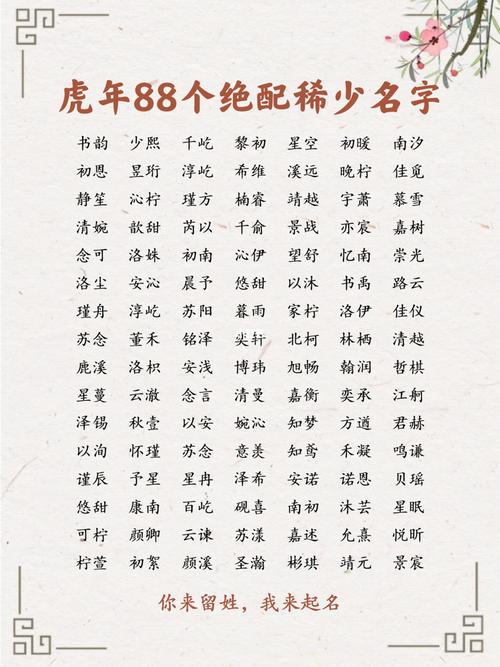 虎年88个绝配稀少名字
书韵 少熙 千屹 黎初 星空 初暖 南汐
初恩 昱珩 淳屹 希维 溪远 晚柠 佳觅
静笙 沁柠 瑾方 楠睿 靖越 宇萧 慕雪
清婉 歆甜 芮以 千俞 景战 亦宸 嘉树
念可 洛姝 初南 沁伊 望舒 忆南 崇光
洛尘 安沁 晨予 悠甜 以沐 书禹 路云
瑾舟 淳屹 苏阳 暮雨 家柠 洛伊 佳仪
苏念 董禾 铭泽 奕轩 北柯 林栖 清越
鹿溪 洛枳 安浅 博玮 旭畅 翰润 哲棋
星蔓 云澈 念言 清曼 嘉衡 奕承 江舸
泽锡 秋壹 以安 婉沁 知梦 方道 君赫
以洵 怀瑾 苏念 意羡 知鸢 禾凝 鸣谦
谨辰 予星 星冉 泽希 安诺 诺恩 贝瑶
悠甜 康南 百屹 砚喜 南初 沐芸 星眠
可柠 颜卿 云谏 苏漾 嘉述 允熹 悦昕
柠萱 初絮 颜溪 圣瀚 彬琪 靖元 景宸
你来留姓，我来起名